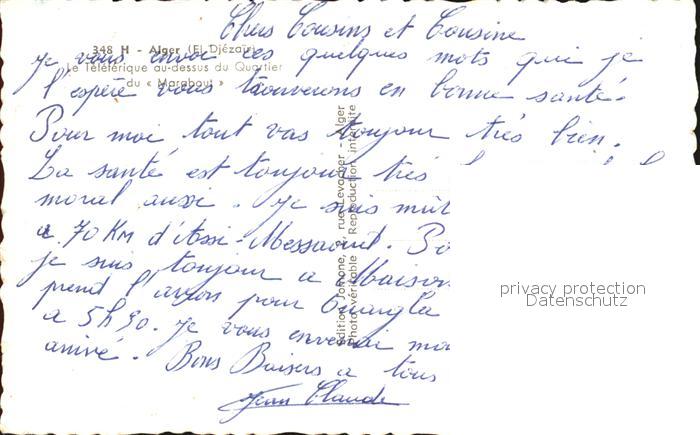 Chers Cousins et Cousine
348 H - Alger (El Djézaïr)
Le Téléférique au-dessus du Quartier
du « Marabout »
Je vous envoi ces quelques mots qui je
l'espère vous trouverons en bonne santé.
Pour moi tout vas toujour très bien.
La santé est toujour très
moral aussi. Je suis
a 70 KM d'Assi-Messaoud.
je suis toujour a Maison
prend l'avion pour Ouargla
a 5h30. Je vous enverrai
arrivé. Bons Baisers a tous
Jean Claude
Edition Jomone, rue Levacher - Alger
Photo véritable Reproduction interdite
privacy protection
Datenschutz